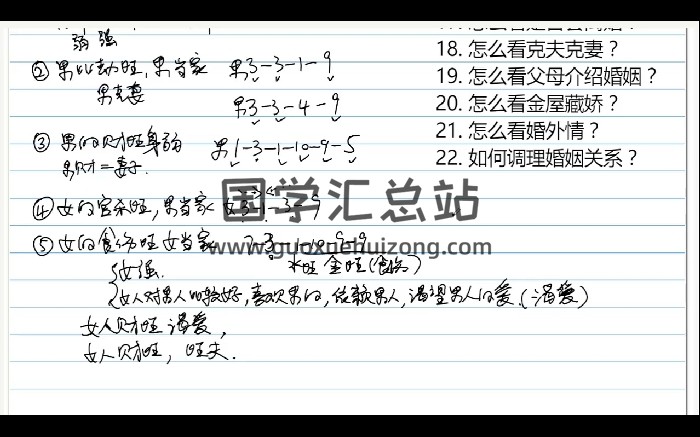 弱 强
② 男比劫旺，男当家 男3-3-1-9
男克妻 男3-3-4-9
③ 男的财旺身弱 男1-3-1-10-9-5
男财=妻子
④ 女的官杀旺，男当家 女3-1-3-9
⑤ 女的食伤旺 女当家
水旺 金旺(食伤)
女强.
女人对男人比较好，喜欢男的，依赖男人，渴望男人的爱(渴爱)
女人财旺 渴爱，
女人财旺，旺夫.
18. 怎么看克夫克妻？
19. 怎么看父母介绍婚姻？
20. 怎么看金屋藏娇？
21. 怎么看婚外情？
22. 如何调理婚姻关系？
国学汇总站
www.guoxuehuizong.com